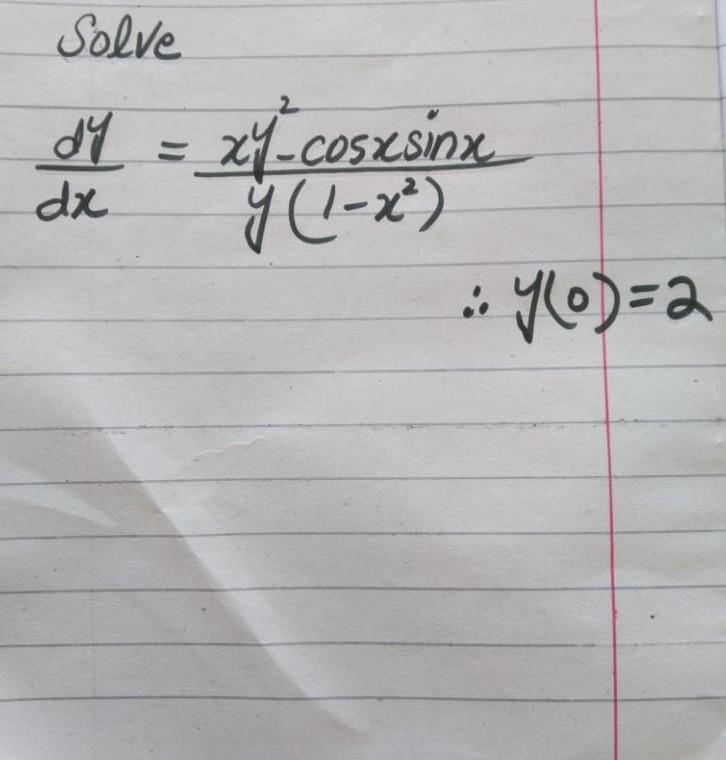 Solve
dy/dx = (xy² - cosxsinx)/(y(1-x²))
∴ y(0)=2